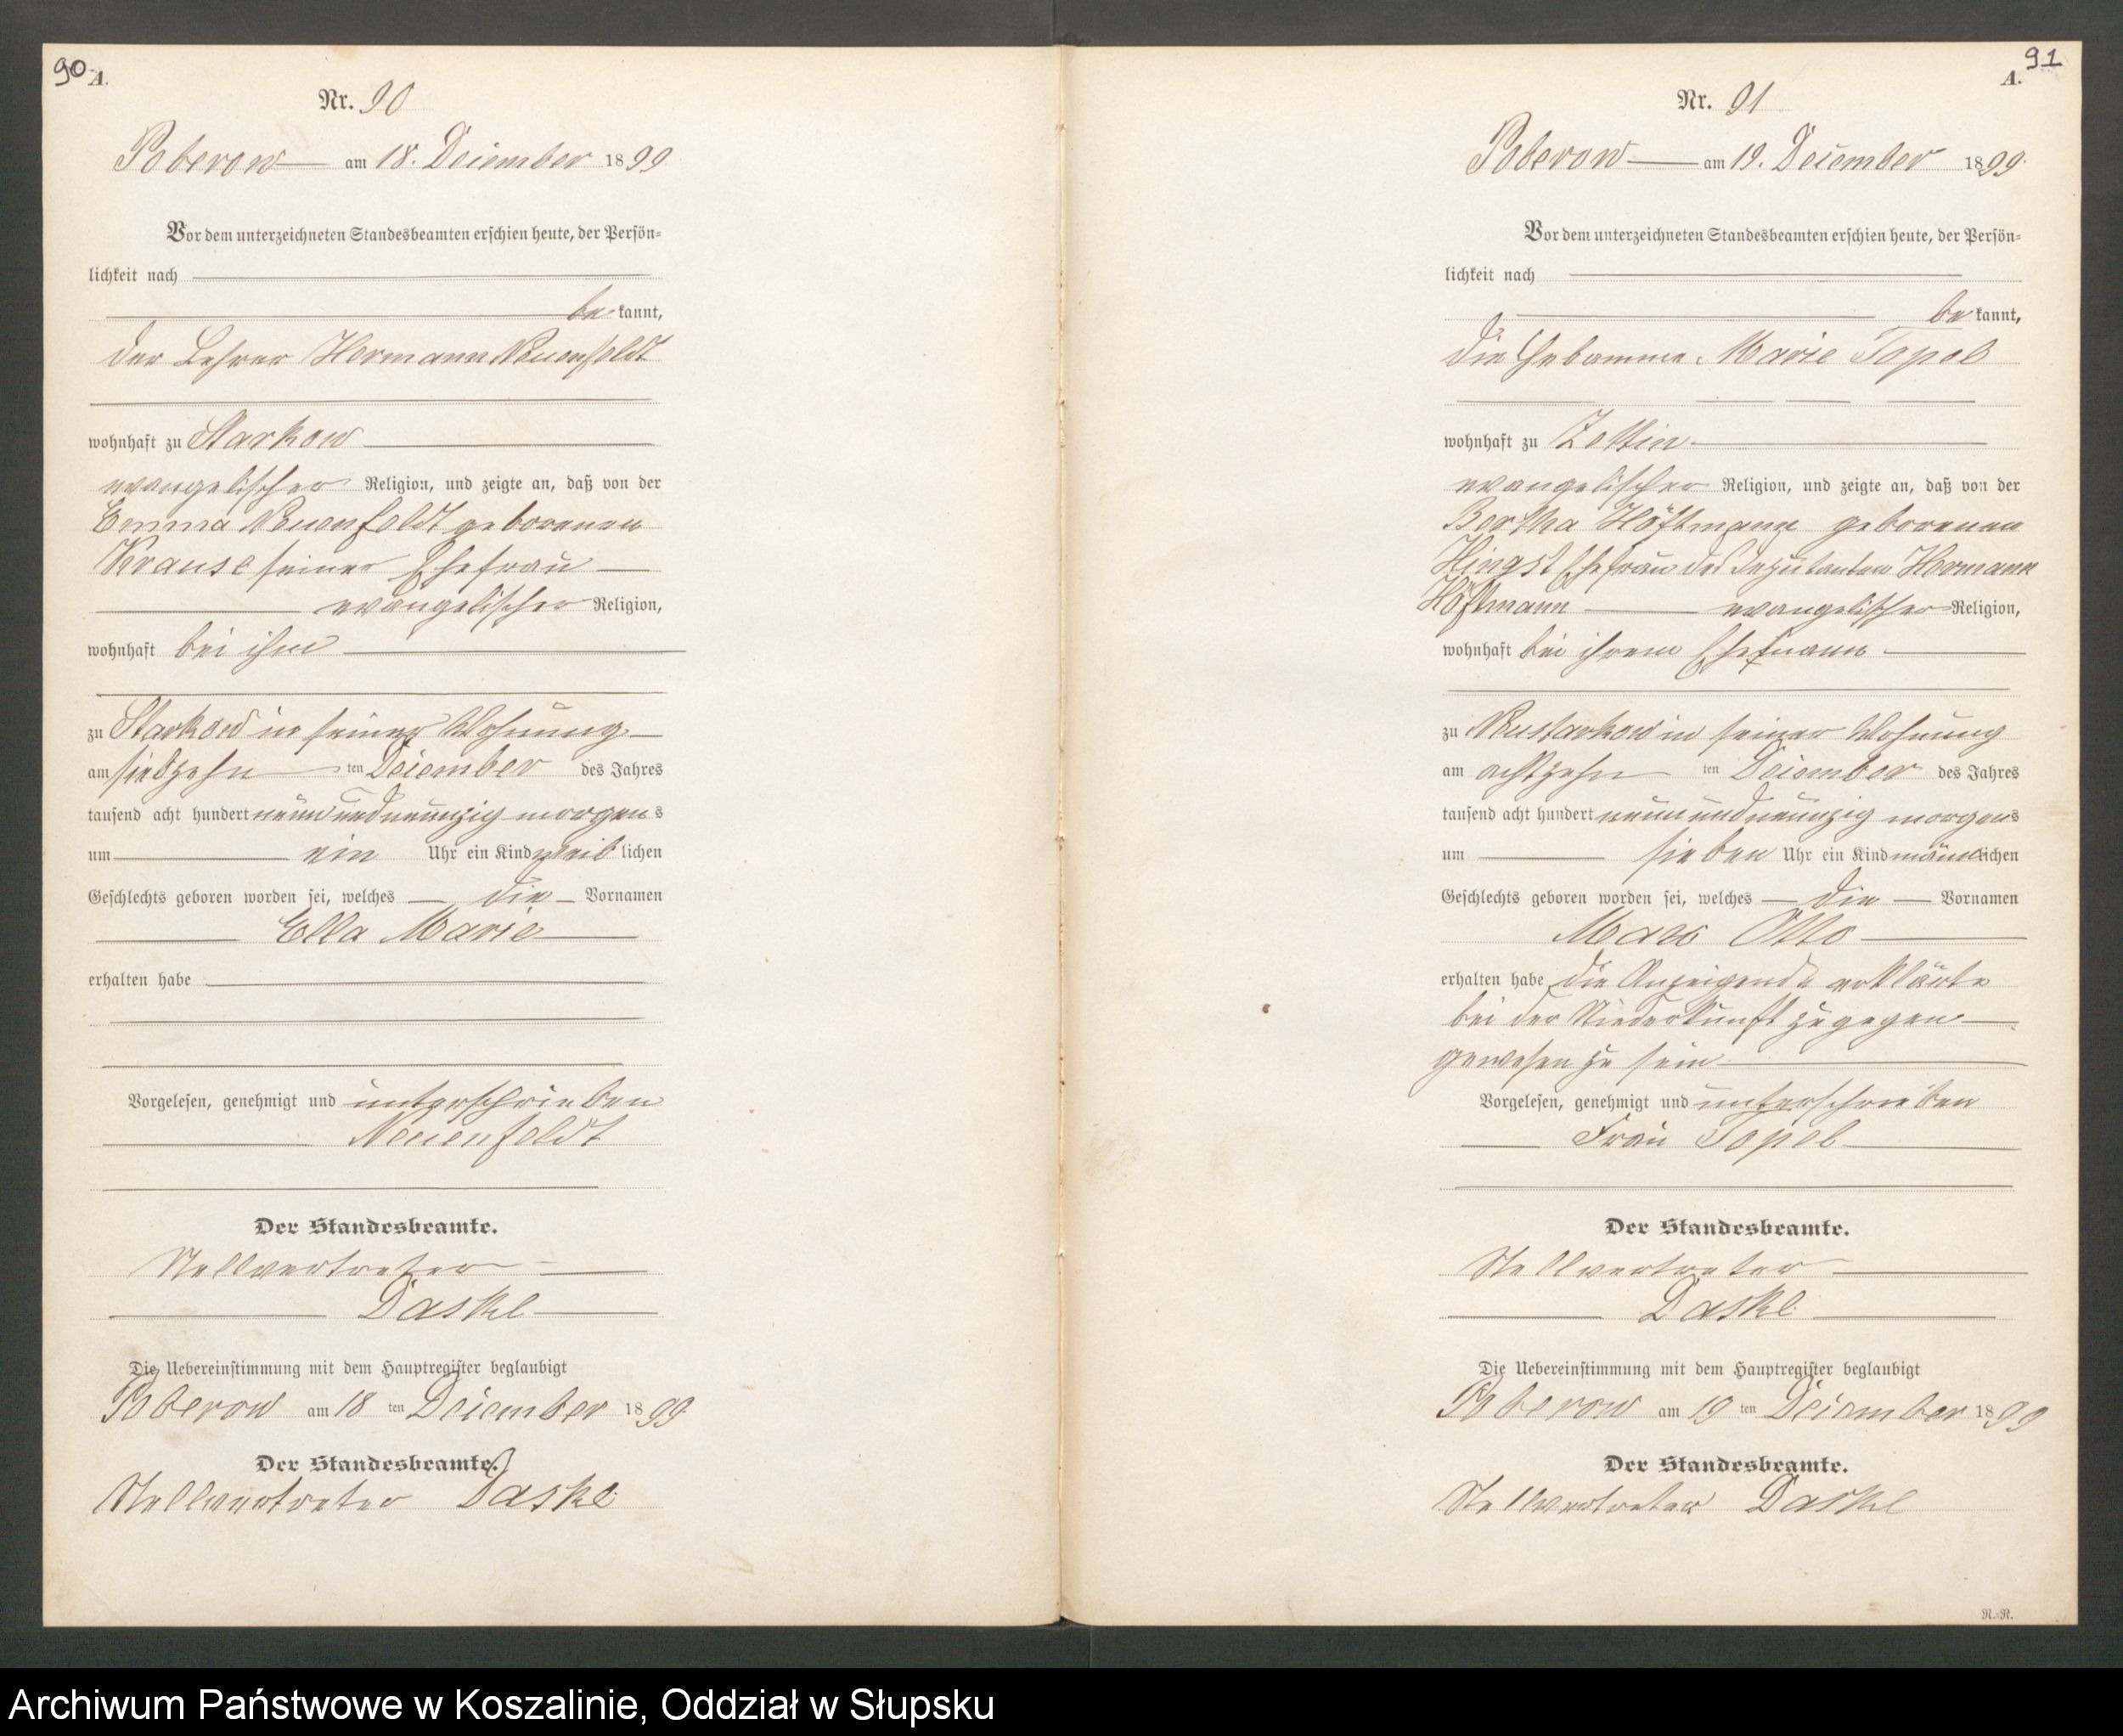 90
A.
Nr. 90
Poberow am 18. Dezember 1899
Vor dem unterzeichneten Standesbeamten erschien heute, der Persön-
lichkeit nach
be kannt,
der Lehrer Hermann Neuenfeldt
wohnhaft zu Starkow
evangelischer Religion, und zeigte an, daß von der
Emma Neuenfeldt geborenen
Krause seiner Ehefrau
evangelischer Religion,
wohnhaft bei ihm
zu Starkow in seiner Wohnung
am siebzehn ten Dezember des Jahres
tausend acht hundert neunundneunzig morgens
um ein Uhr ein Kind weib lichen
Geschlechts geboren worden sei, welches die Vornamen
Ella Marie
erhalten habe
Vorgelesen, genehmigt und unterschrieben
Neuenfeldt
Der Standesbeamte.
Stellvertreter
Daske
Die Uebereinstimmung mit dem Hauptregister beglaubigt
Poberow am 18 ten Dezember 1899
Der Standesbeamte.
Stellvertreter Daske
91
A.
Nr. 91
Poberow am 19. Dezember 1899
Vor dem unterzeichneten Standesbeamten erschien heute, der Persön-
lichkeit nach
be kannt,
die Hebamme Marie Topel
wohnhaft zu Zettin
evangelischer Religion, und zeigte an, daß von der
Bertha Höftmann geborenen
Hingst Ehefrau des Deputanten Hermann
Höftmann evangelischer Religion,
wohnhaft bei ihrem Ehemann
zu Neustarkow in seiner Wohnung
am achtzehn ten Dezember des Jahres
tausend acht hundert neunundneunzig morgens
um sieben Uhr ein Kind männlichen
Geschlechts geboren worden sei, welches die Vornamen
Max Otto
erhalten habe die Anzeigende erklärte
bei der Niederkunft zugegen
gewesen zu sein
Vorgelesen, genehmigt und unterschrieben
Frau Topel
Der Standesbeamte.
Stellvertreter
Daske
Die Uebereinstimmung mit dem Hauptregister beglaubigt
Poberow am 19 ten Dezember 1899
Der Standesbeamte.
Stellvertreter Daske
R.-R.
Archiwum Państwowe w Koszalinie, Oddział w Słupsku